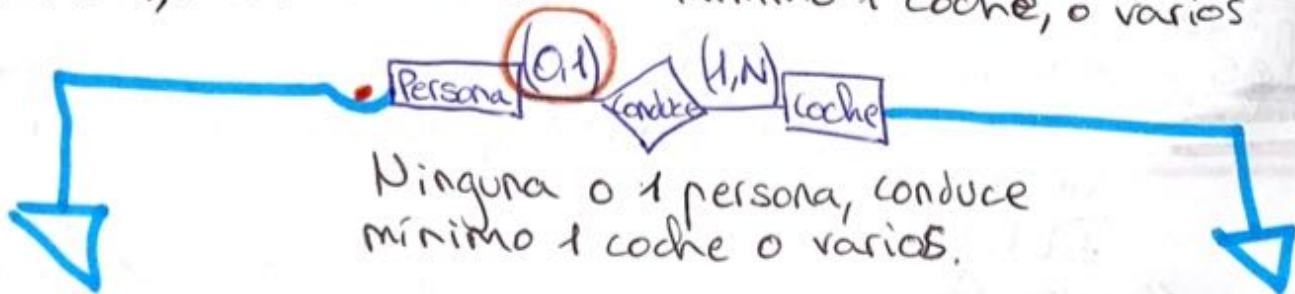 mínimo 1 coche, o varios
Persona (0,1) conduce (1,N) coche
Ninguna o 1 persona, conduce
mínimo 1 coche o varios.